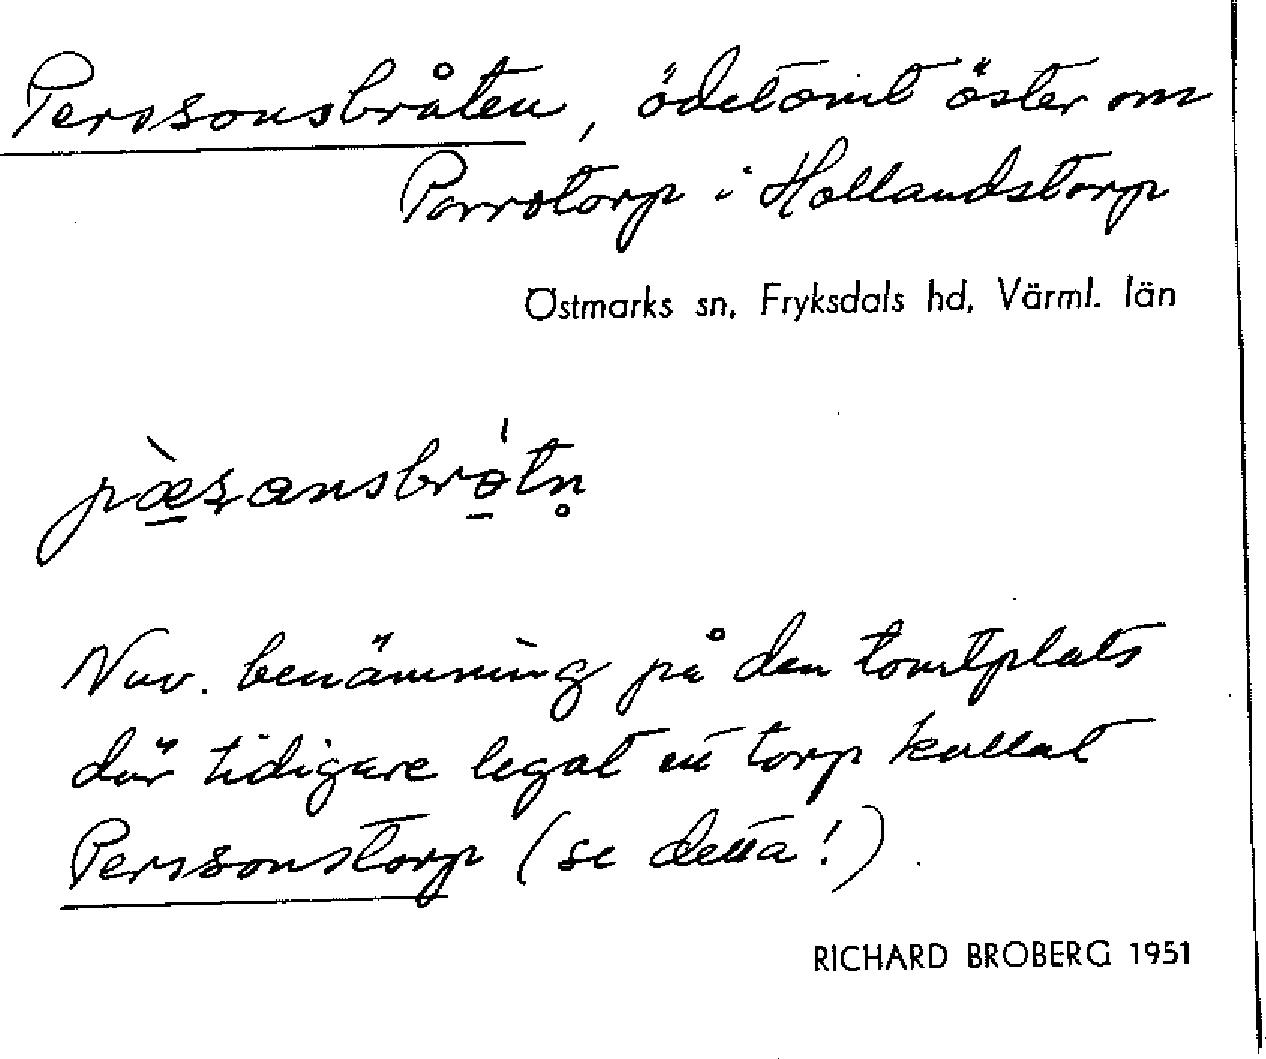 Perssonsbråten, ödetomt öster om
Porrotorp i Hollandstorp
Östmarks sn, Fryksdals hd, Värml. län
Nuv. benämning på den tomtplats
där tidigare legat ett torp kallat
Perssonstorp (se detta!).
RICHARD BROBERG 1951